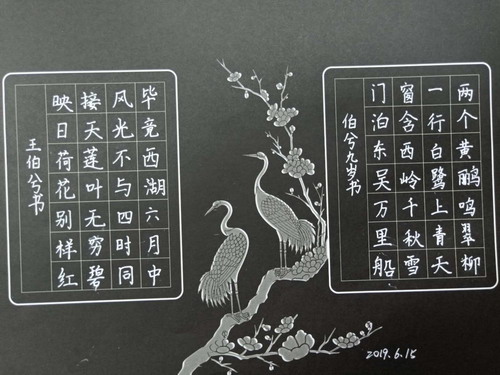 两个黄鹂鸣翠柳
一行白鹭上青天
窗含西岭千秋雪
门泊东吴万里船
伯兮九岁书
毕竟西湖六月中
风光不与四时同
接天莲叶无穷碧
映日荷花别样红
王伯兮书
2019.6.15